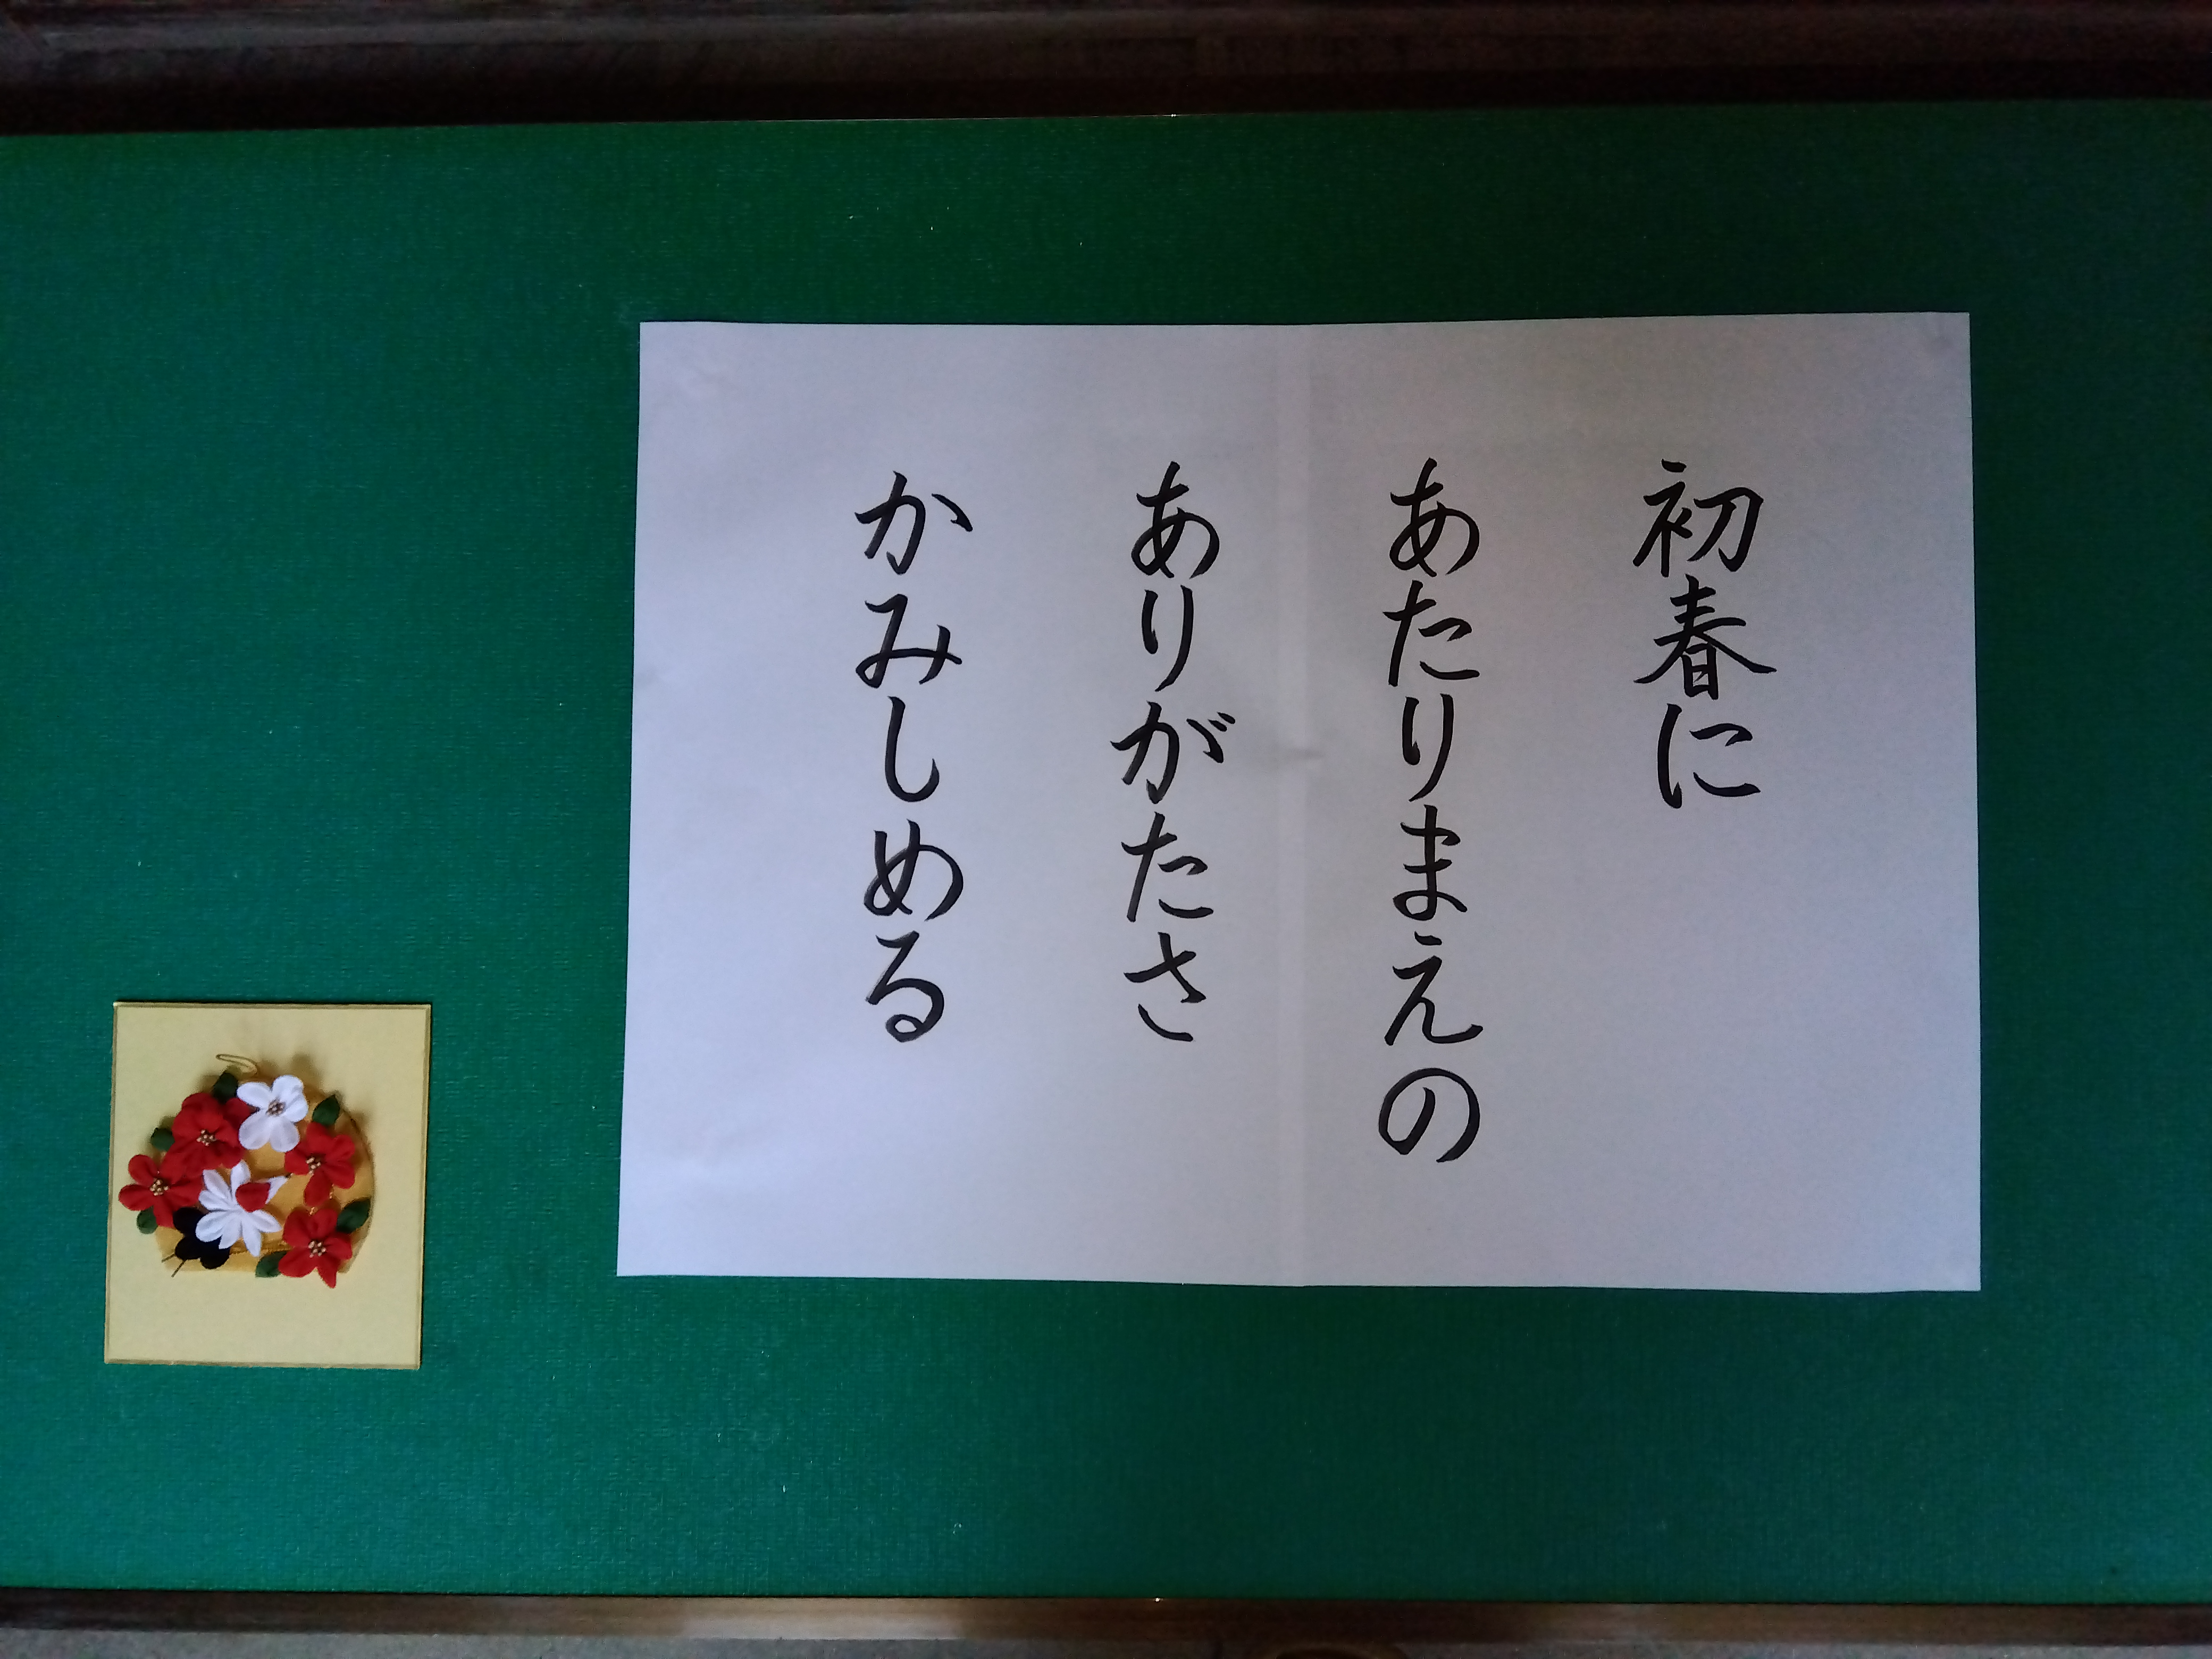 初春に
あたりまえの
ありがたさ
かみしめる